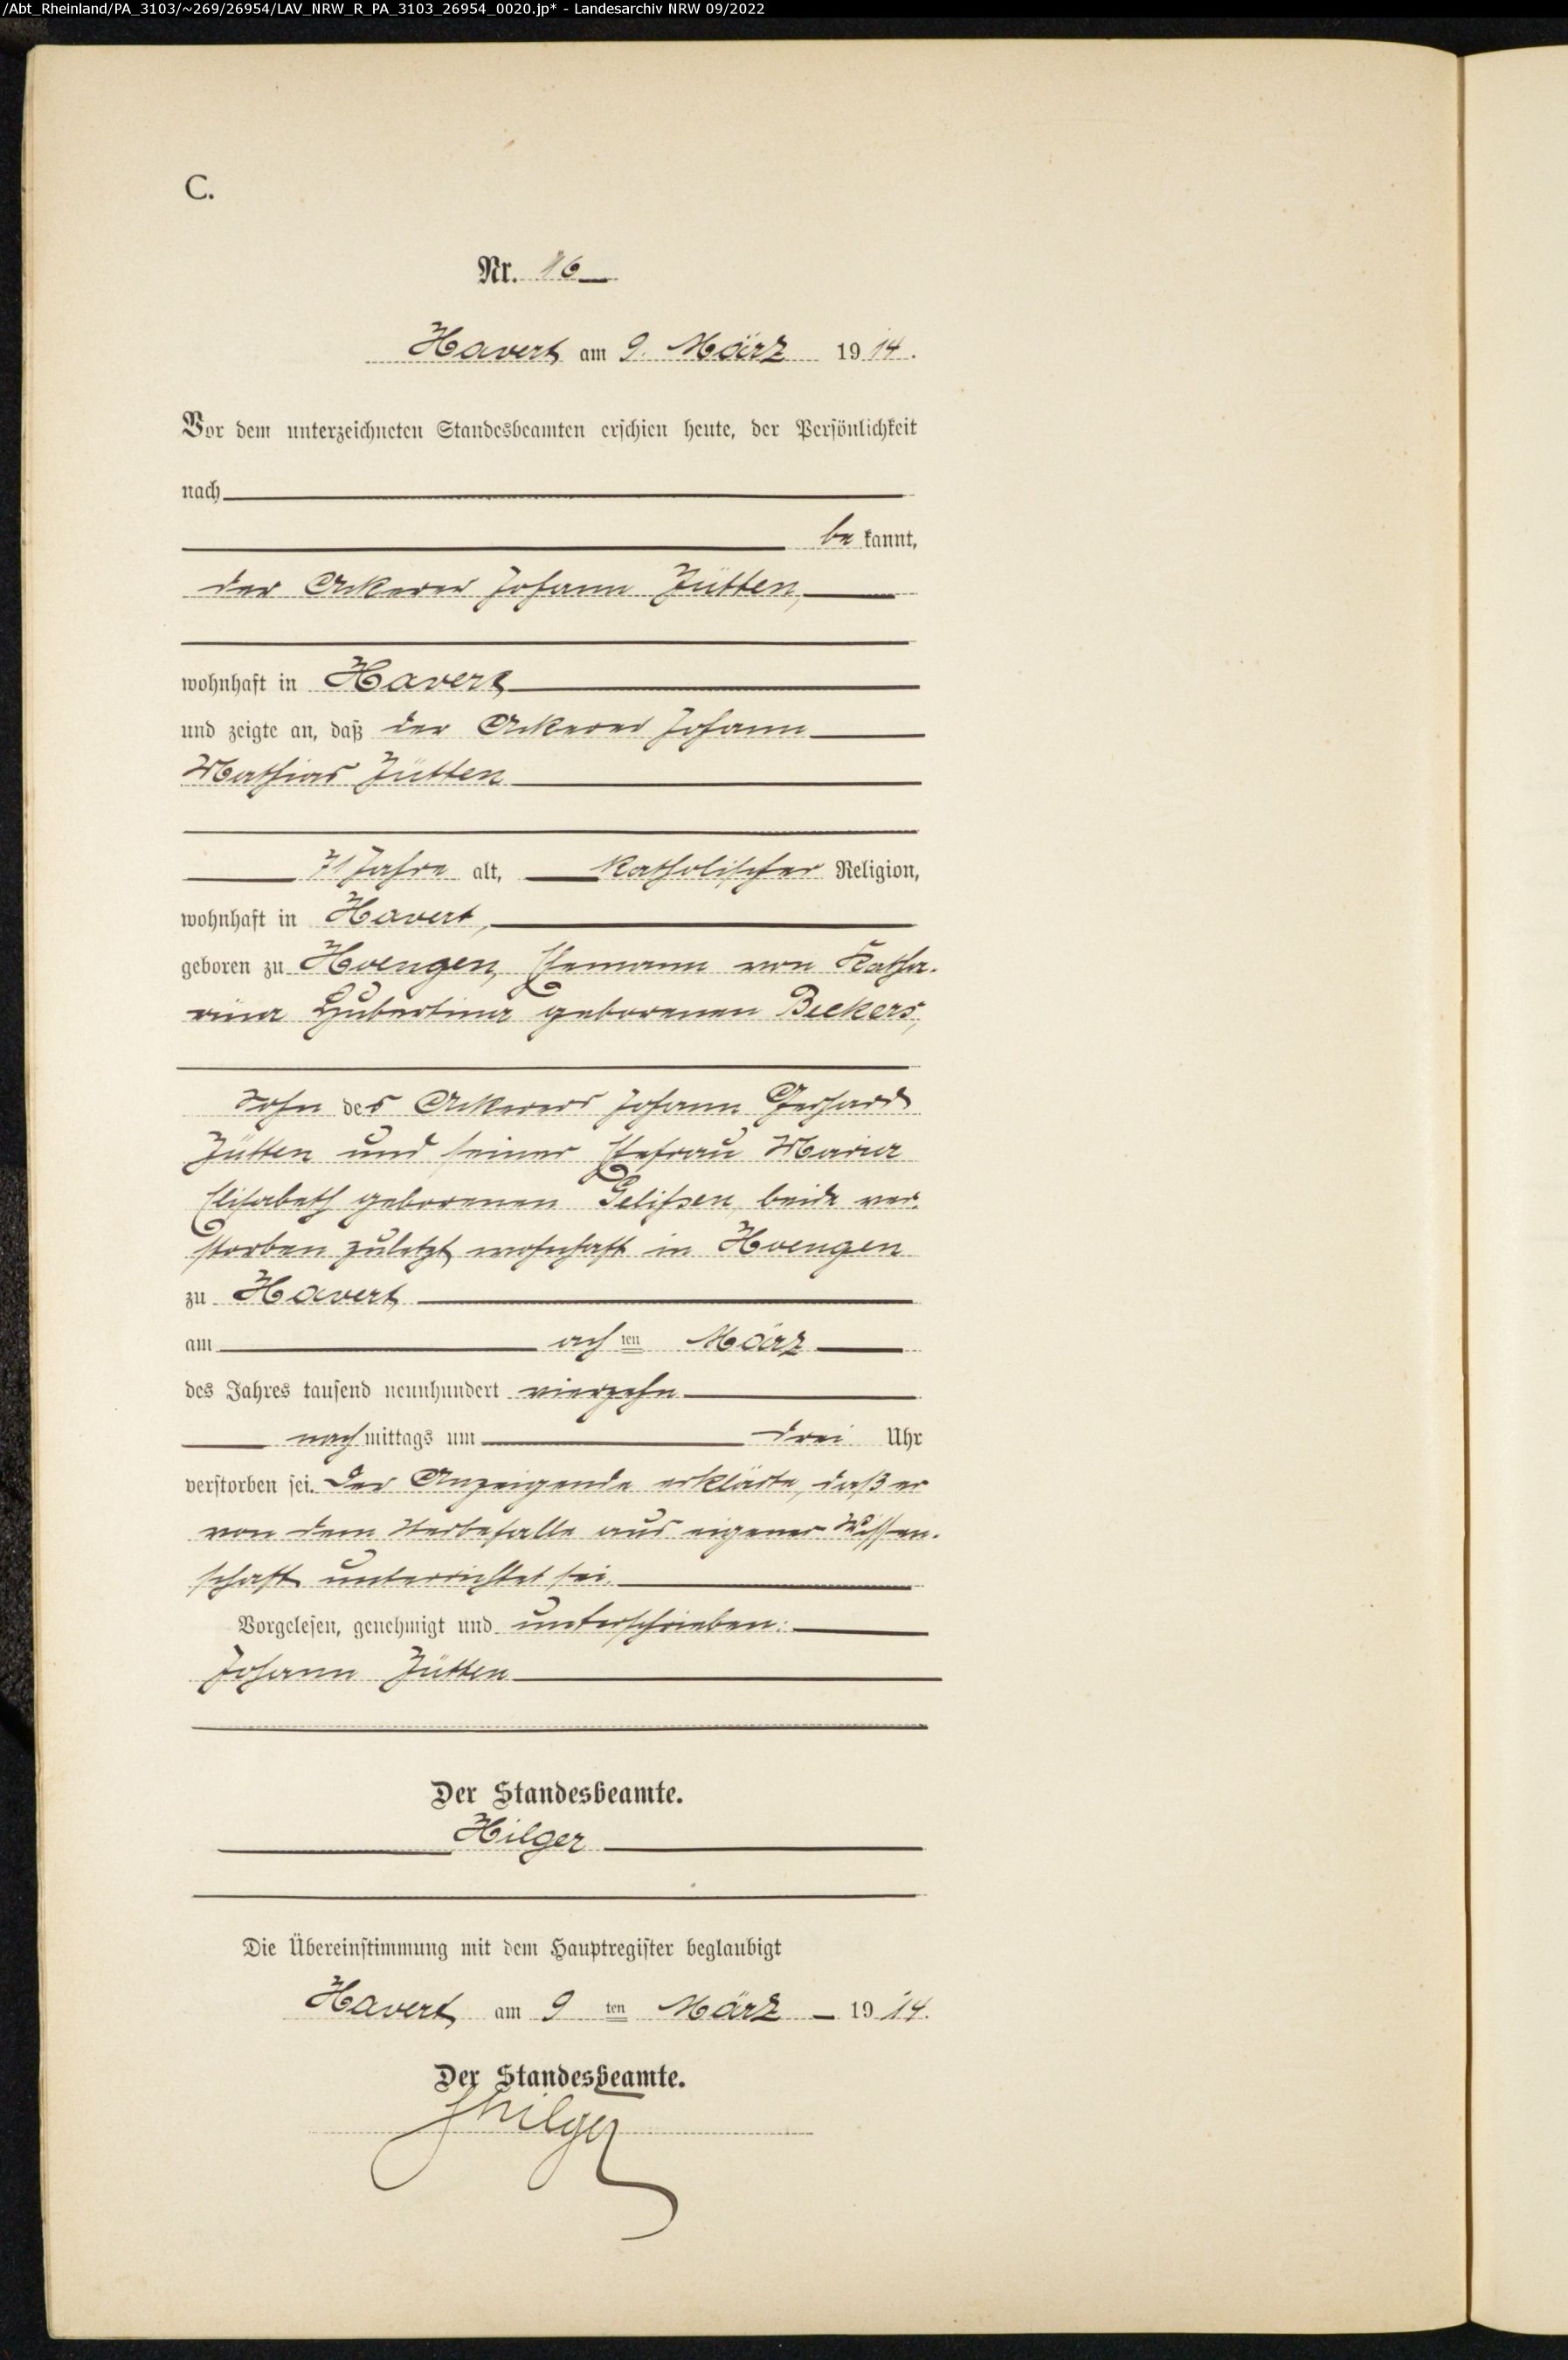 /Abt_Rheinland/PA_3103/~269/26954/LAV_NRW_R_PA_3103_26954_0020.jp* - Landesarchiv NRW 09/2022
C.
Nr. 16
Havert am 9. März 1914.
Vor dem unterzeichneten Standesbeamten erschien heute, der Persönlichkeit
nach
be kannt,
der Ackerer Johann Jütten,
wohnhaft in Havert
und zeigte an, daß der Ackerer Johann
Mathias Jütten
71 Jahre alt, katholischer Religion,
wohnhaft in Havert,
geboren zu Hoengen, Ehemann von Katha-
rina Hubertina geborenen Beckers,
Sohn des Ackerers Johann Gerhard
Jütten und seiner Ehefrau Maria
Elisabeth geborenen Gelißen, beide ver-
storben zuletzt wohnhaft in Hoengen
zu Havert
am ach ten März
des Jahres tausend neunhundert vierzehn
nach mittags um drei Uhr
verstorben sei. Der Anzeigende erklärte, daß er
von dem Sterbefalle aus eigener Wissen-
schaft unterrichtet sei.
Vorgelesen, genehmigt und unterschrieben:
Johann Jütten
Der Standesbeamte.
Hilger
Die Übereinstimmung mit dem Hauptregister beglaubigt
Havert am 9 ten März 1914.
Der Standesbeamte.
Hilger